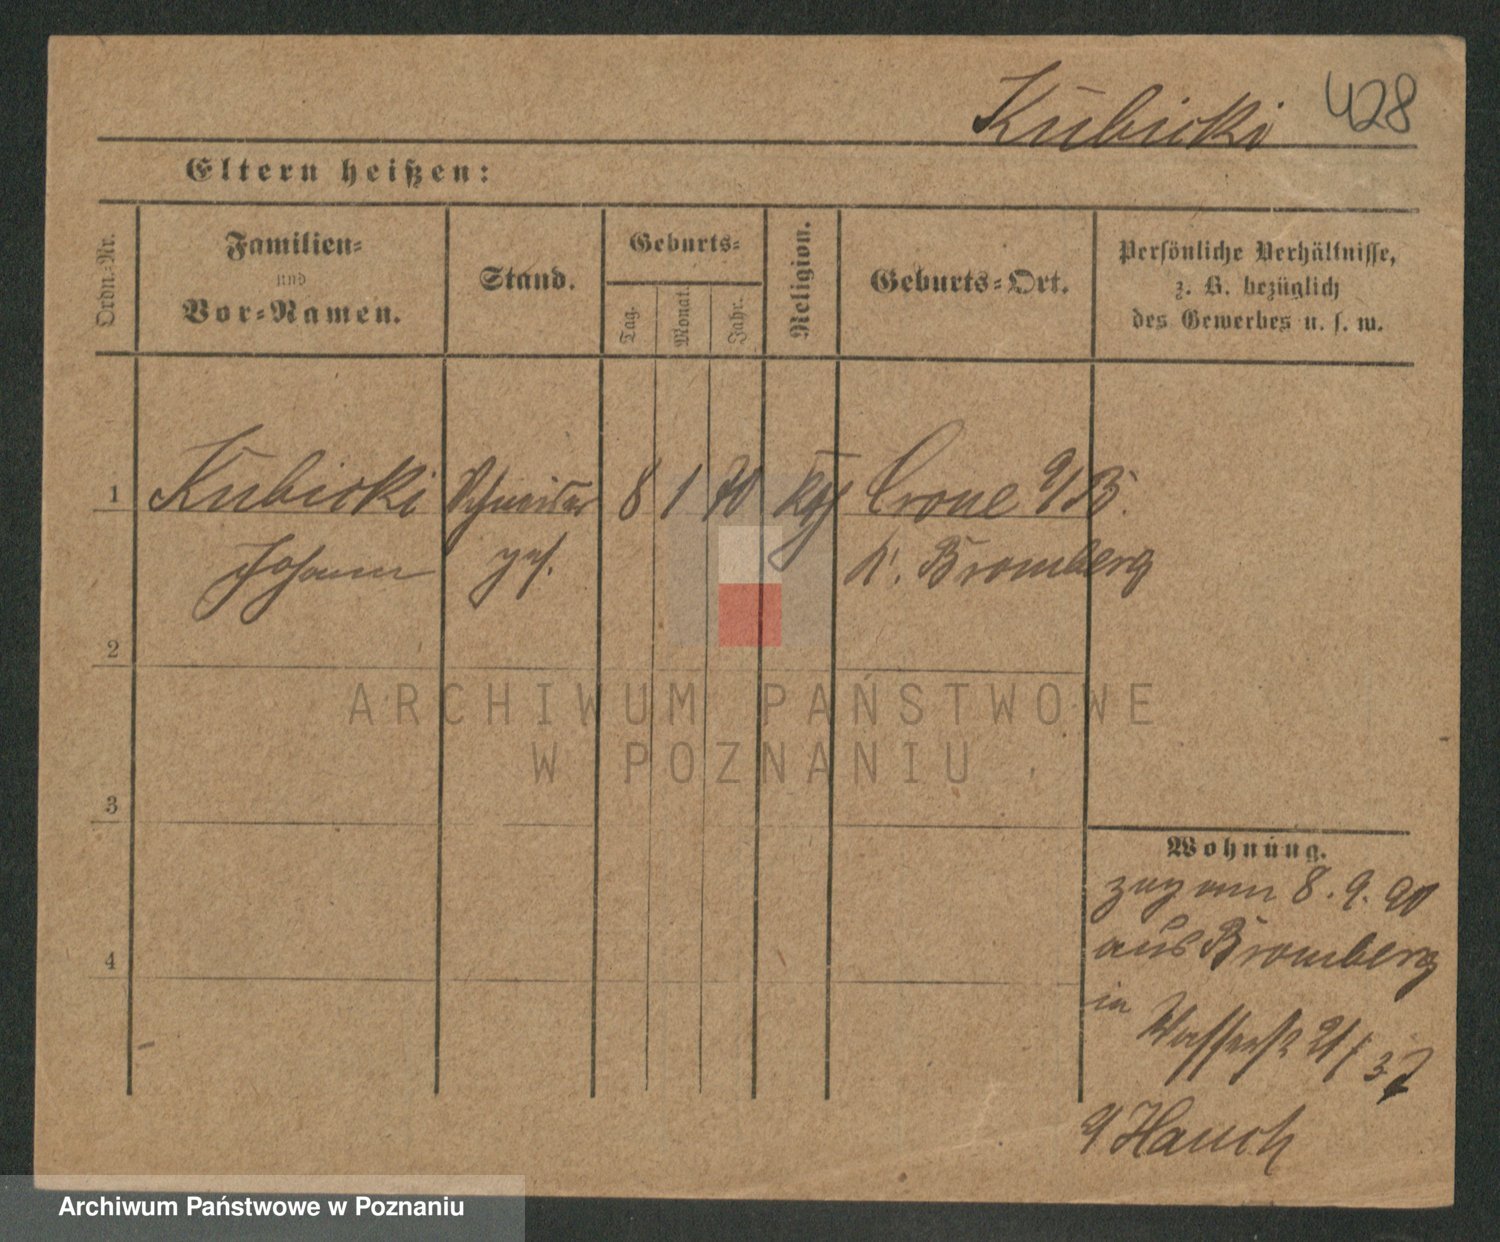 Kubicki 428
Eltern heißen:
Ordn.-Nr.
Familien-
und
Vor-Namen.
Stand.
Geburts-
Tag.
Monat.
Jahr.
Religion.
Geburts-Ort.
Persönliche Verhältnisse,
z. B. bezüglich
des Gewerbes u. s. w.
1 Kubicki Schneider 8 1 70 Kth Crone a/B.
Johann ges. Kr. Bromberg
2
ARCHIWUM PAŃSTWOWE
W POZNANIU
3
Wohnung.
zug von 8.9.90
aus Bromberg
4
in Wasserstr 21/
b/ Hauch
Archiwum Państwowe w Poznaniu